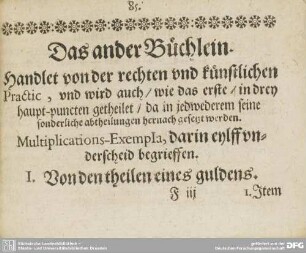 85.
Das ander Büchlein.
Handlet von der rechten vnd künstlichen
Practic, vnd wird auch / wie das erste / in drey
haupt-puncten getheilet / da in jedwederem seine
sonderliche abtheilungen hernach gesetzt werden.
Multiplications-Exempla, darin eylff vn-
derscheid begrieffen.
I. Von den theilen eines guldens.
F iij 1. Item